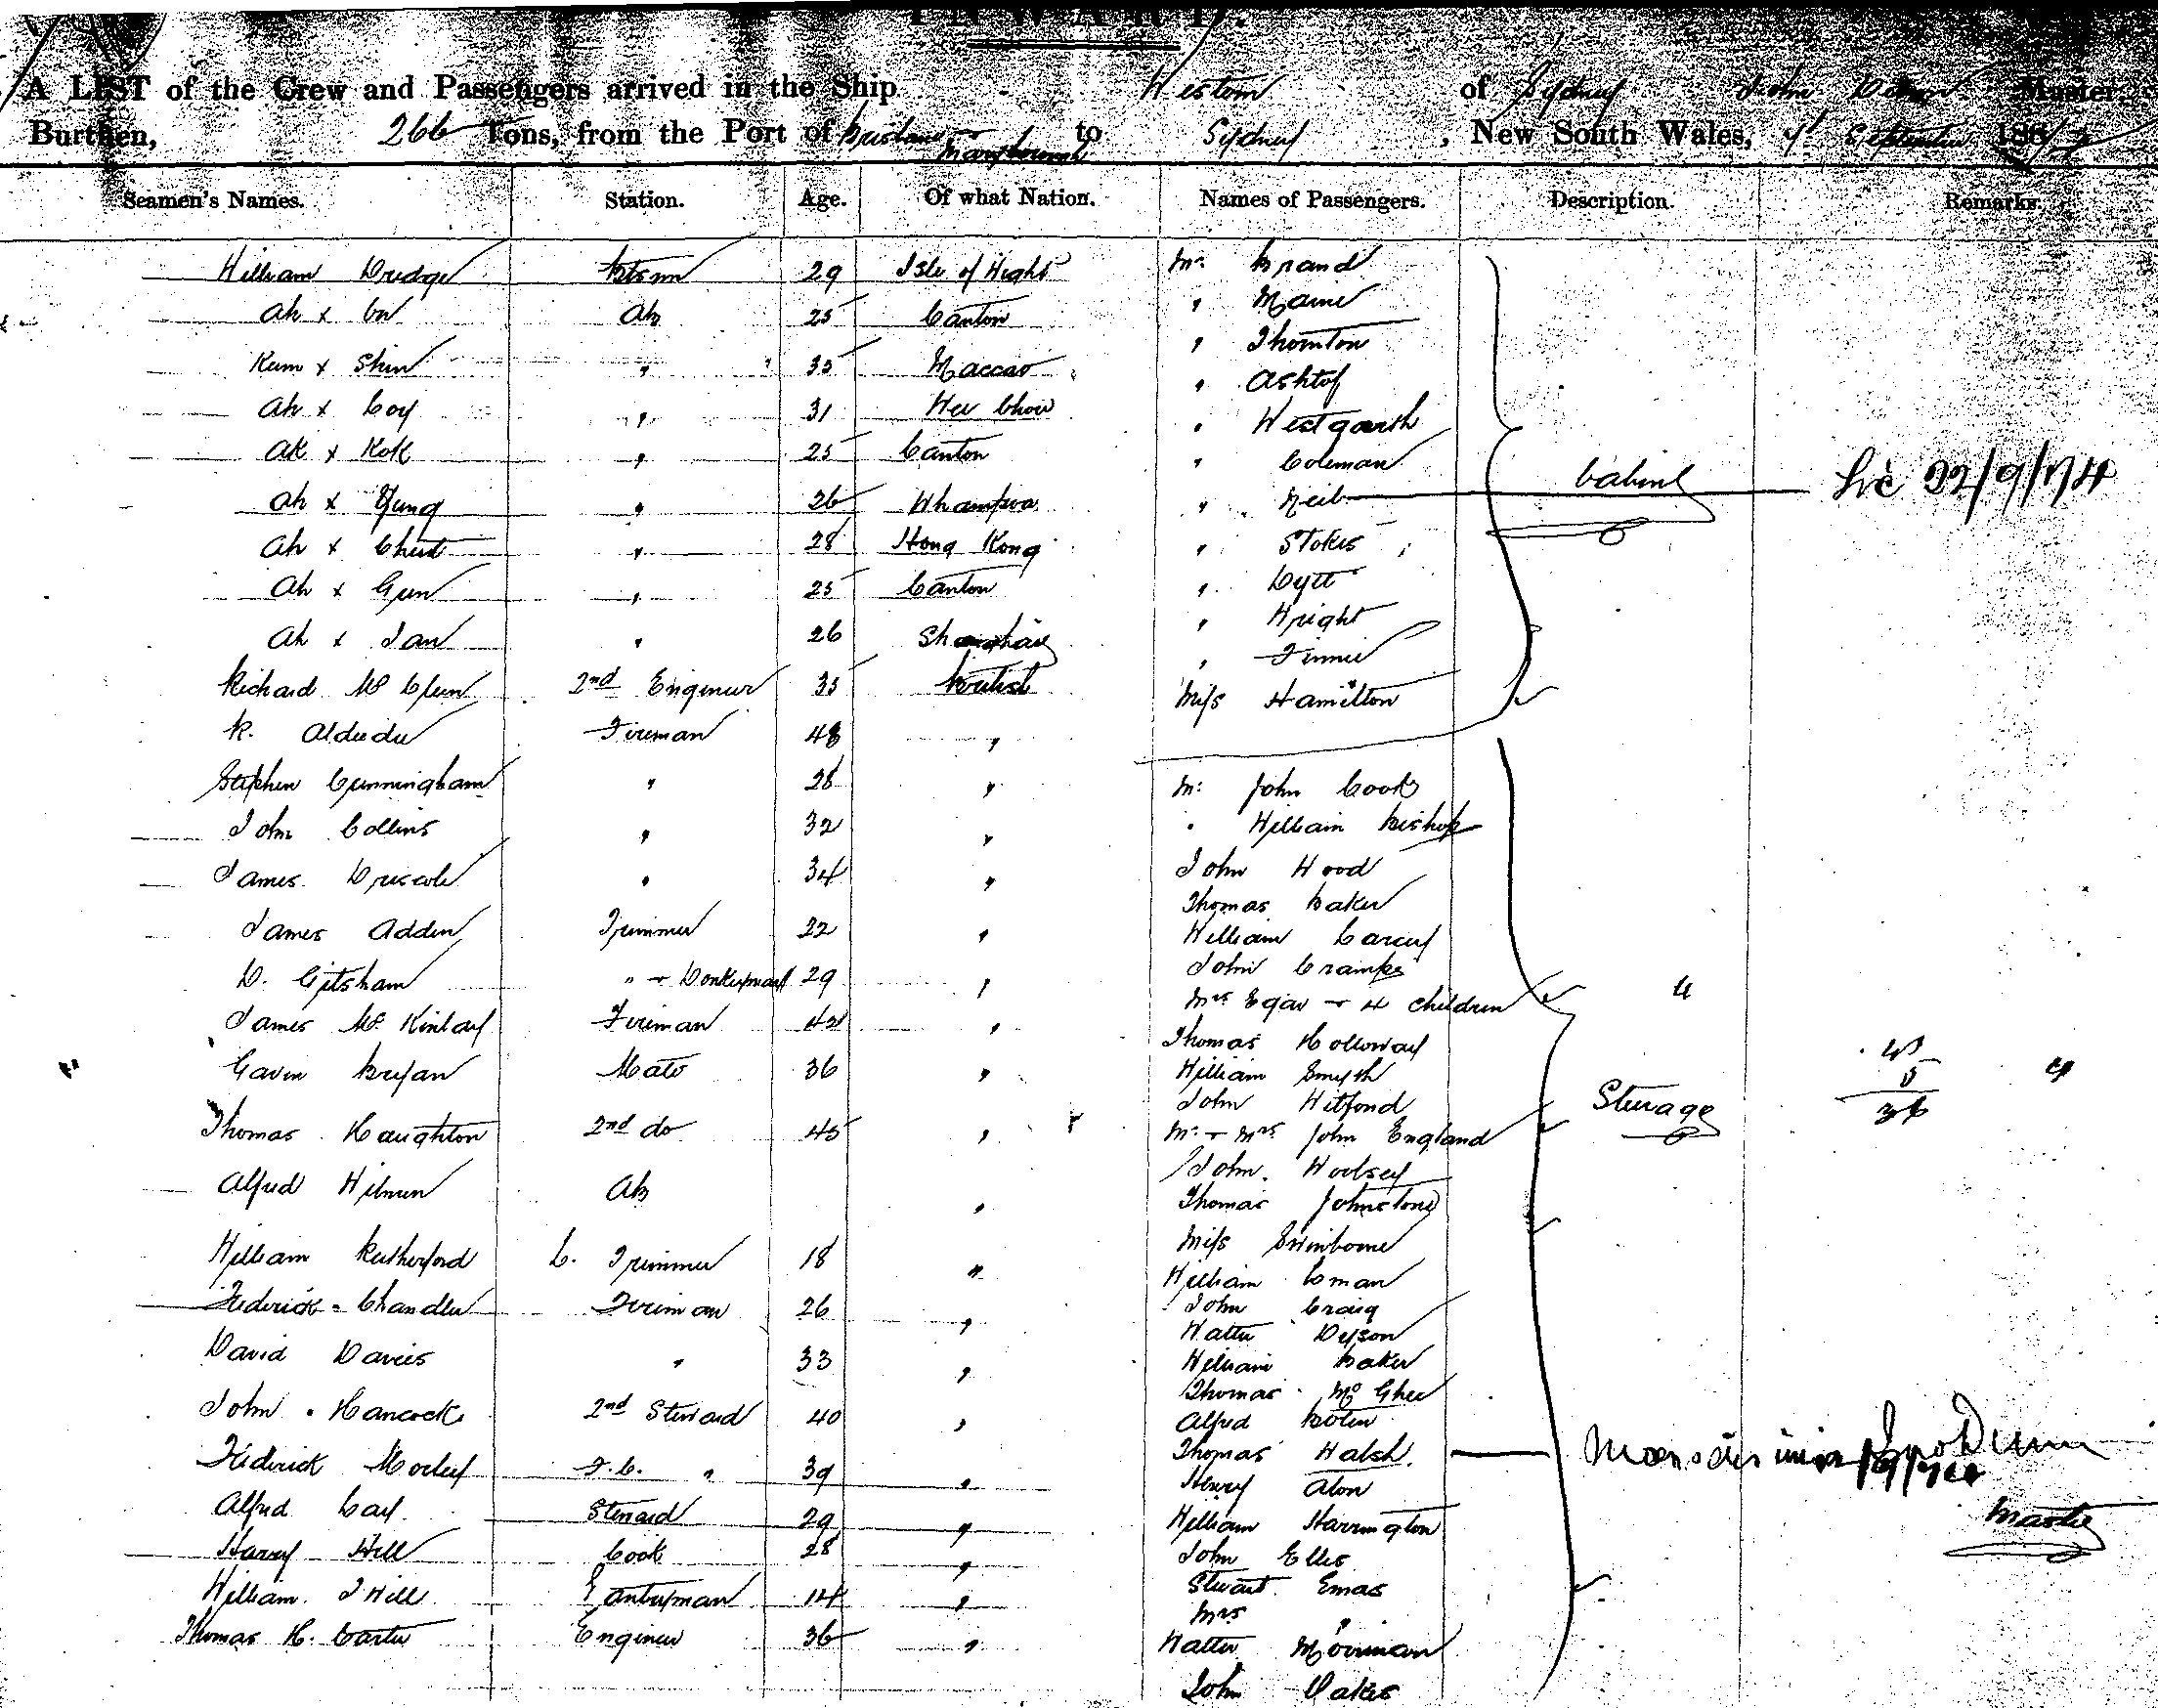 INWARD.
A LIST of the Crew and Passengers arrived in the Ship Western of Sydney John Master,
Burthen, 266 Tons, from the Port of Brisbane & Maryborough to Sydney , New South Wales, September 188
Seamen's Names. Station. Age. Of what Nation. Names of Passengers. Description. Remarks.
William Dredge Btsmn 29 Isle of Wight Mr. Brand
Ah x On Ab 25 Canton " Maine
Kum x Shin " 35 Maccao " Thornton
Ah x Coy " 31 Chow " Ashtof
Ak x Kok " 25 Canton " Westgarth
Ah x Yung " 26 Whampoa " Coleman
Cabin
Ah x " 28 Hong Kong " Neil
Ah x Gun " 25 Canton " Stokes
Ah x Jan " 26 Shanghai " Dytt
" Wright
" Finnie
Richard Mc Clean 2nd Engineer 35 British Miss Hamilton
R. Fireman 48 "
Stephen Cunningham " 28 " Mr. John Cook
John Collins " 32 " " William Bishop
James Driscole " 34 " John Wood
Thomas Baker
James Adden Trimmer 22 " William Carey
D. Gitsham " & Donkeyman 29 " John Cramp
Mrs Egar & 4 children 4
James Mc Kinlay Fireman 42 " Thomas Holloway
Gavin Bryan Mate 36 " William Smyth
John Witford
Sterage
Thomas Haughton 2nd do 45 " Mr & Mrs John England
John Woolsey
Alfred Wilmen Ab " Thomas Johnstone
William Rutherford C. Trimmer 18 " Miss Swinborne
William Eman
Frederick Chandler Fireman 26 " John Craig
Walter Dyson
David Davies " 33 " William Baker
Thomas Mc Ghee
John Hancock 2nd Steward 40 " Alfred Bolen
Frederick Morley F.C. " 39 " Thomas Walsh
Henry Alon
Alfred Cay Steward 29 " William Harrington
Master
Harry Hill Cook 28 " John Ellis
William J Hill Pantryman 14 " Stewart Emas
Mrs "
Thomas H. Carter Engineer 36 " Walter Moorman
John Oakes